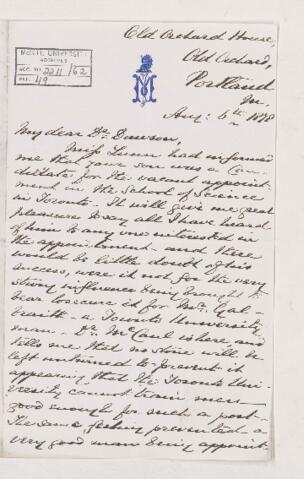 McGILL UNIVERSITY
ARCHIVES
ACC. NO. 2211/62
REF. 49
Old Orchard House,
Old Orchard,
Portland
Me.
Aug: 6th 1878
My dear Dr. Dawson,
Miss Lunn had informed
me that your son was a Can-
didate for the vacant appoint-
ment in the School of Science
in Toronto. It will give me great
pleasure to say all I have heard
of him to any one interested in
the appointment - and there
would be little doubt of his
success, were it not for the very
strong influence being brought to
bear to secure it for Mr. Gal-
braith - a Toronto University
man. Dr. McCaul is here, and
tells me that no stone will be
left unturned to prevent it
appearing that the Toronto Uni-
versity cannot train men
good enough for such a post -
The same feeling prevented a
very good man being appoint-